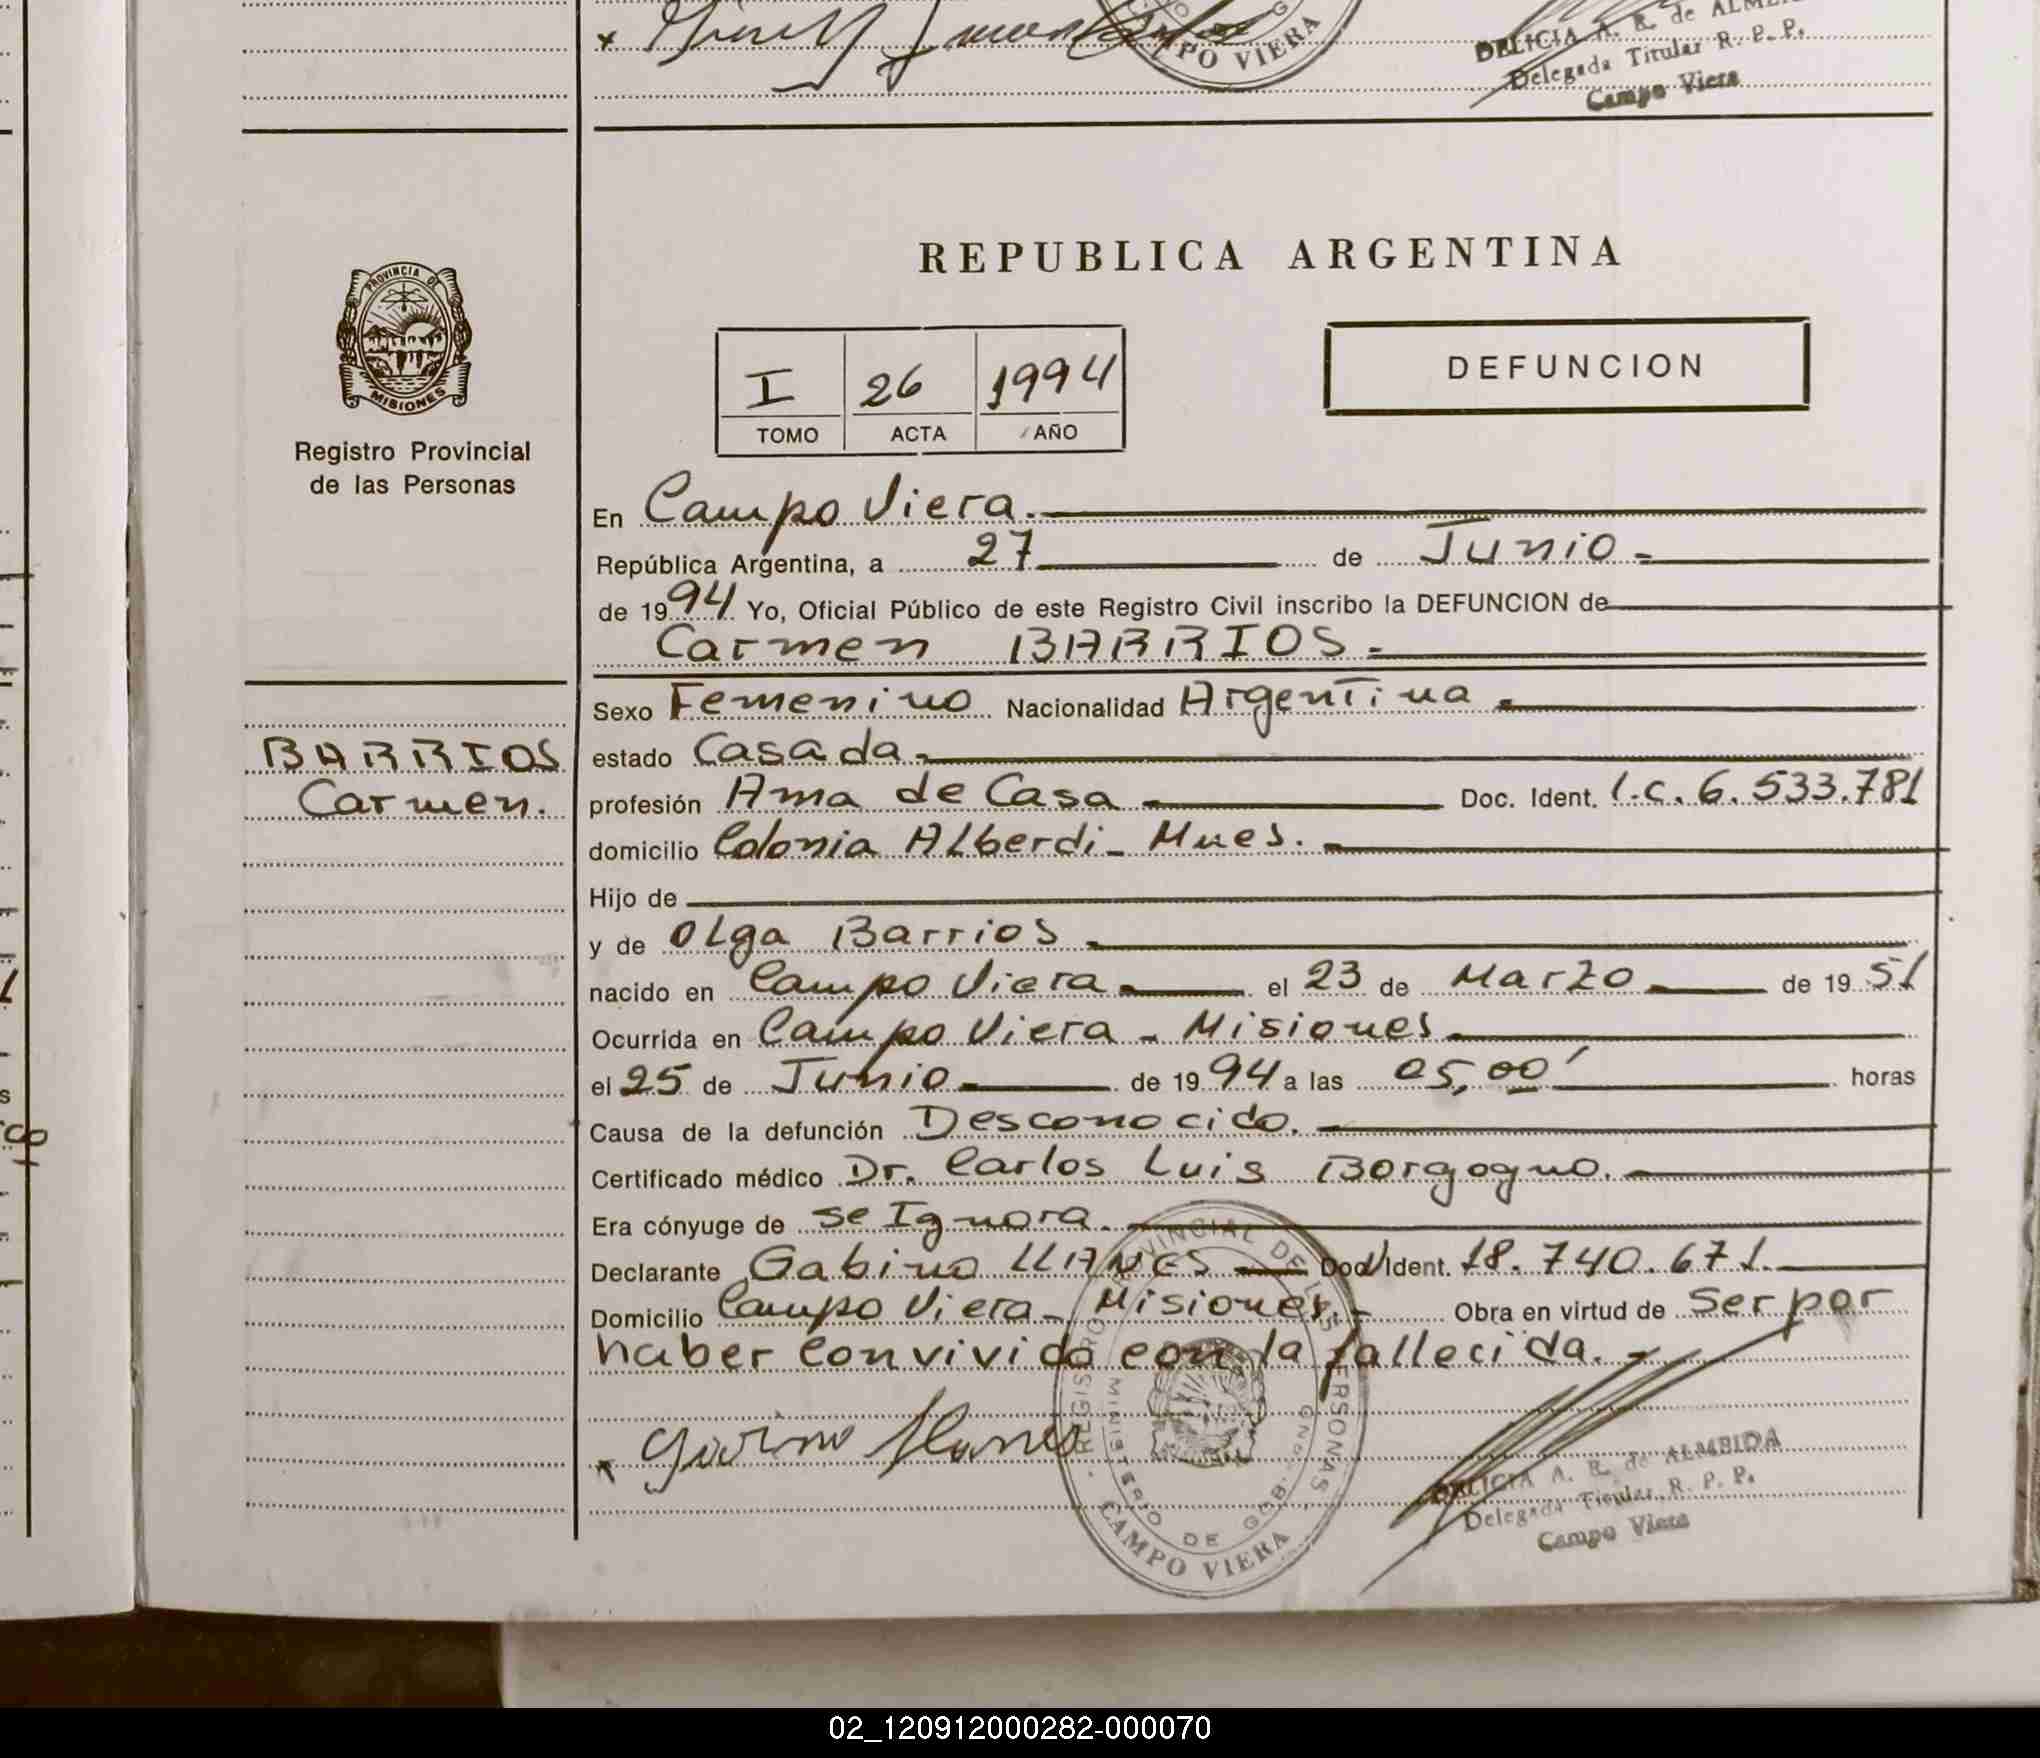 CAMPO VIERA
DELICIA A. R. de ALMEI
Delegada Titular R. P. P.
Campo Viera
PROVINCIA DE
MISIONES
Registro Provincial
de las Personas
REPUBLICA ARGENTINA
I 26 1994
TOMO ACTA AÑO
DEFUNCION
En Campo Viera.
República Argentina, a 27 de Junio
de 1994 Yo, Oficial Público de este Registro Civil inscribo la DEFUNCION de
Carmen BARRIOS.
BARRIOS
Carmen.
Sexo Femenino Nacionalidad Argentina
estado Casada
profesión Ama de Casa Doc. Ident. l.c. 6.533.781
domicilio Colonia Alberdi - Mnes.
Hijo de
y de Olga Barrios
nacido en Campo Viera el 23 de Marzo de 1951
Ocurrida en Campo Viera - Misiones
el 25 de Junio de 1994 a las 05,00' horas
Causa de la defunción Desconocido.
Certificado médico Dr. Carlos Luis Borgogno.
Era cónyuge de se Ignora.
Declarante Gabino LLANES Doc. Ident. 18.740.671.
Domicilio Campo Viera - Misiones. Obra en virtud de Ser por
haber convivido con la fallecida.
REGISTRO PROVINCIAL DE LAS PERSONAS
MINISTERIO DE GOB.
CAMPO VIERA
DELICIA A. R. de ALMEIDA
Delegada Titular R. P. P.
Campo Viera
02_120912000282-000070